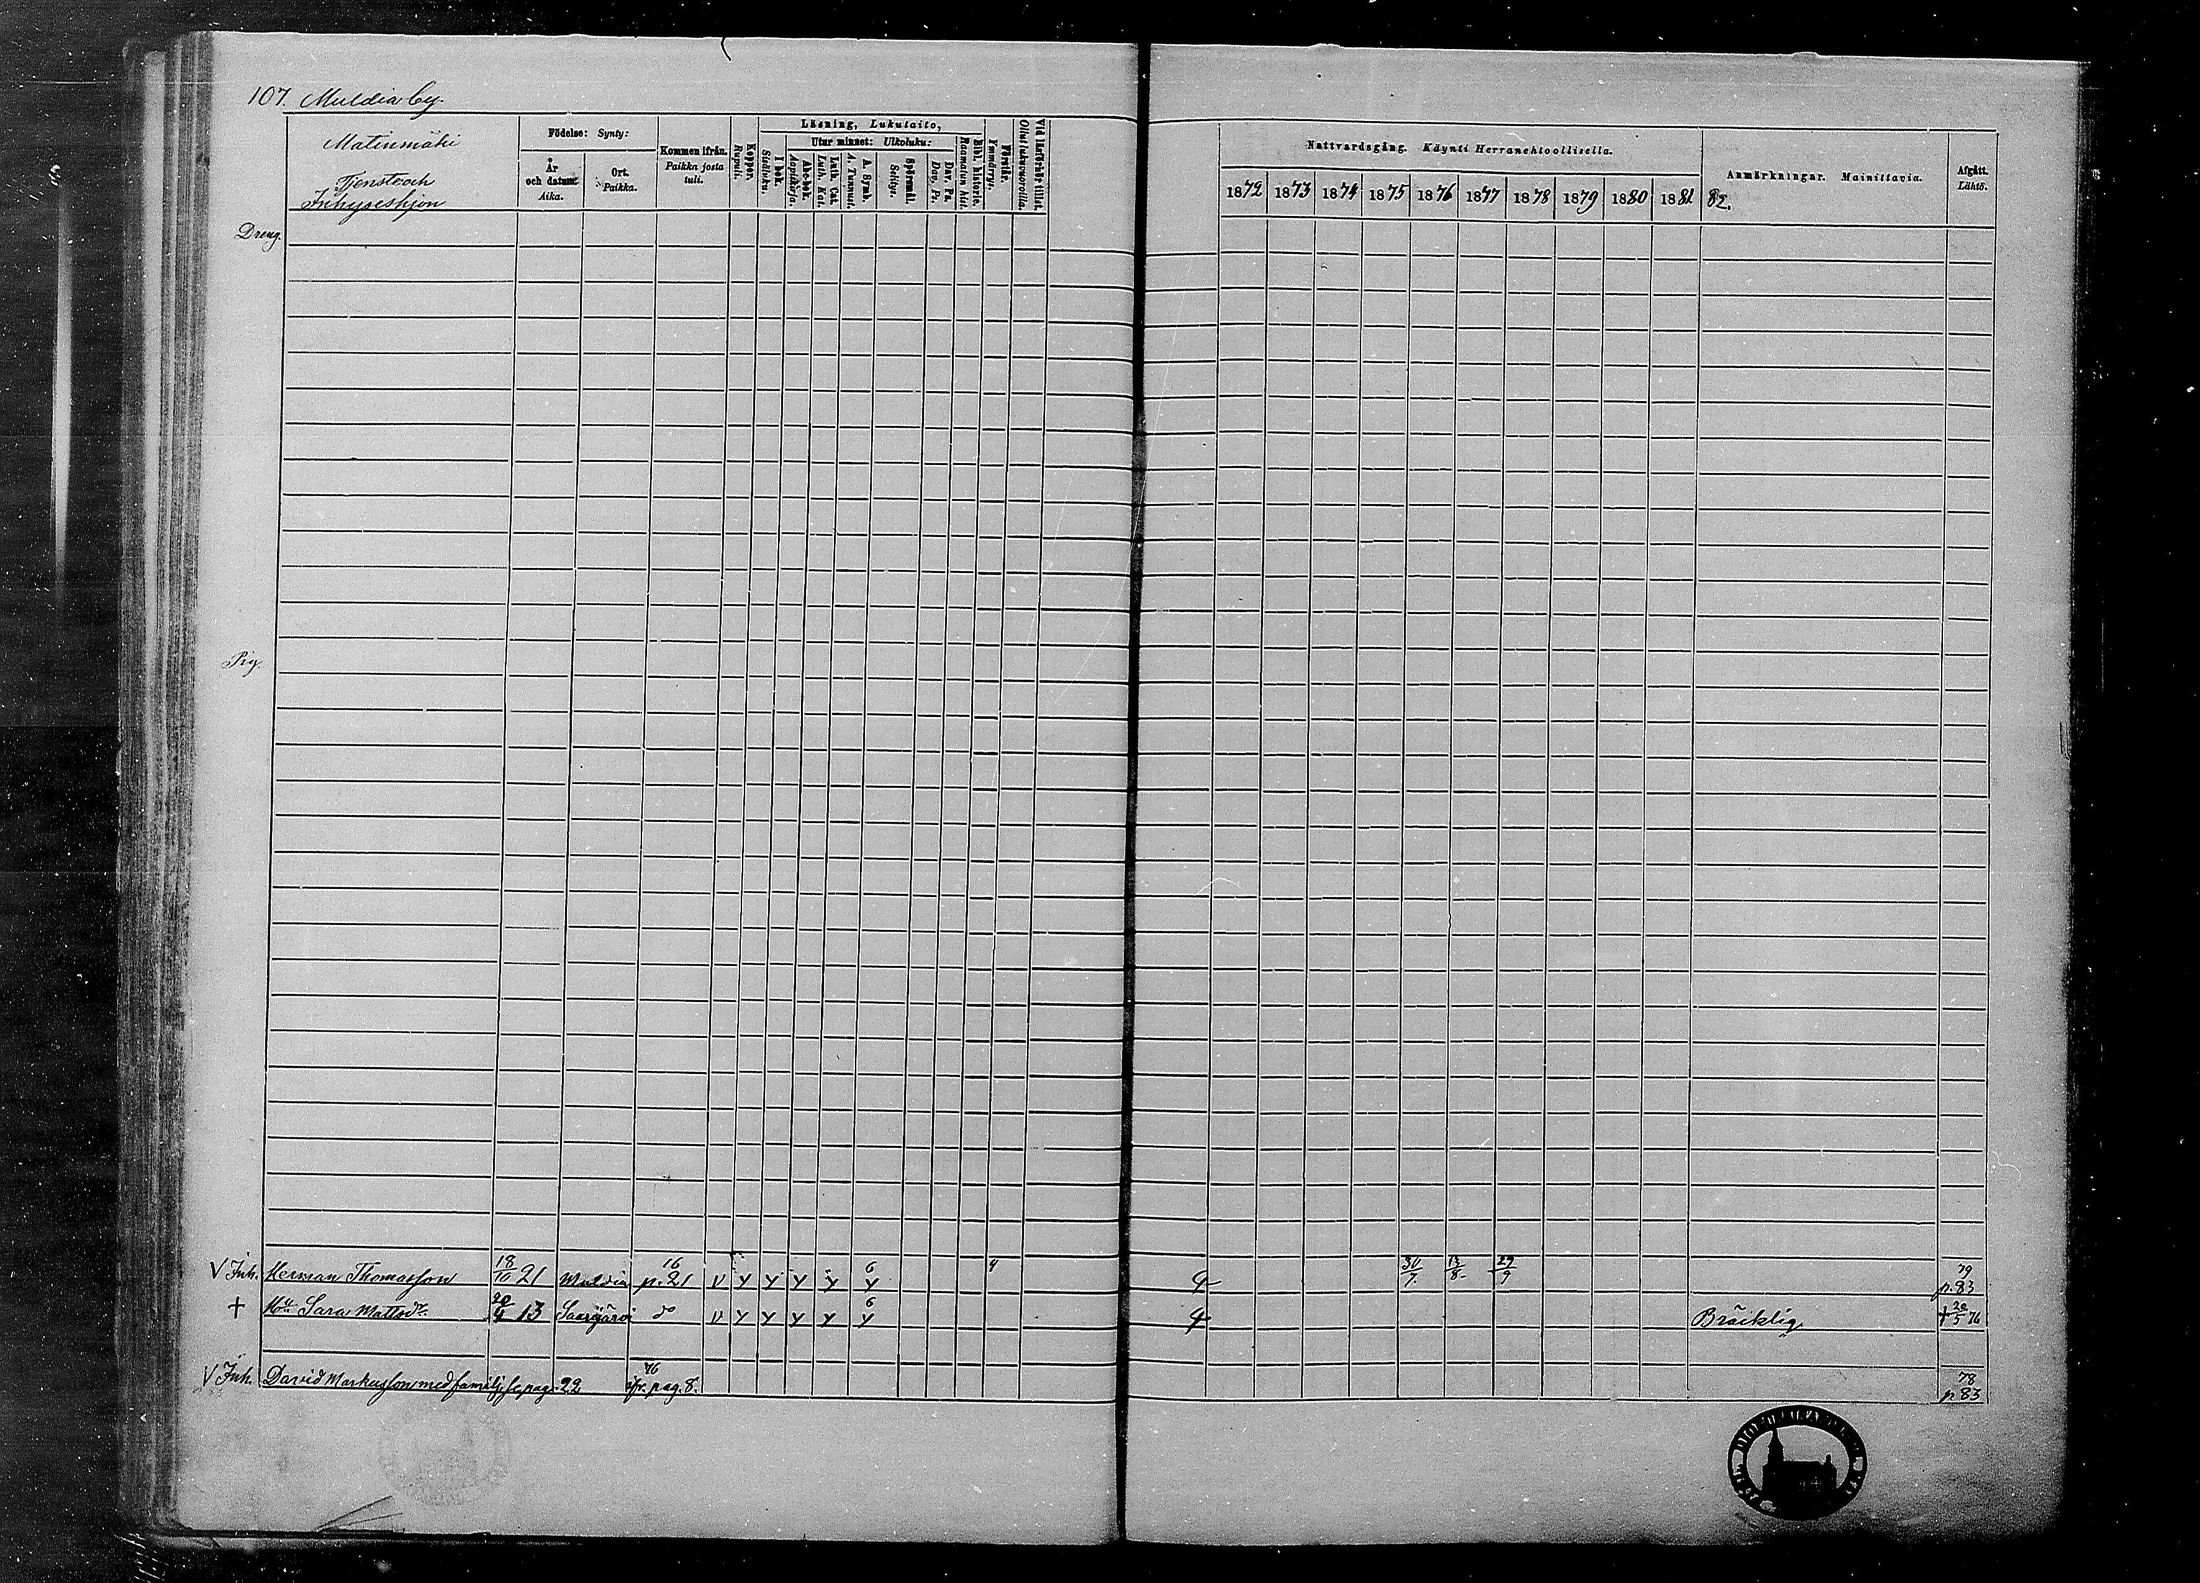 107. Muldia by.
Matinmäki
Tjenste och
Inhyseshjon
Födelse: Synty:
År och datum. Aika.
Ort. Paikka.
Kommen ifrån. Paikka josta tuli.
Koppor. Rupuli.
Läsning, Lukutaito,
I bok. Sisäluku.
Utur minnet: Ulkoluku:
Abc-bok. Aapiskirja.
Luth. Cat. Luth. Kat.
A. Symb. A. Tunnust.
Spörsmål. Selitys.
Dav. Ps. Dav. Ps.
Bibl. historie. Raamatun hist.
Förstår. Ymmärrys.
Vid läsförhör tillst. Ollut lukuvuoroilla.
Nattvardsgång. Käynti Herranehtoollisella.
1872 1873 1874 1875 1876 1877 1878 1879 1880 1881 82.
Anmärkningar. Mainittavia.
Afgått. Lähtö.
Dreng.
Pig.
V Inh. Herman Thomasson 18/10 21 Muldia 16 p. 21 v y y y y 6 y 4 30/7 13/8 29/9 79 p. 83
+ Hu Sara Mattsdr. 20/4 13 Saarijärvi do v y y y y 6 y Bräcklig + 20/5 76
V Inh. David Markusson med familj se pag. 22 76 ifr. pag. 8. 78 p 83